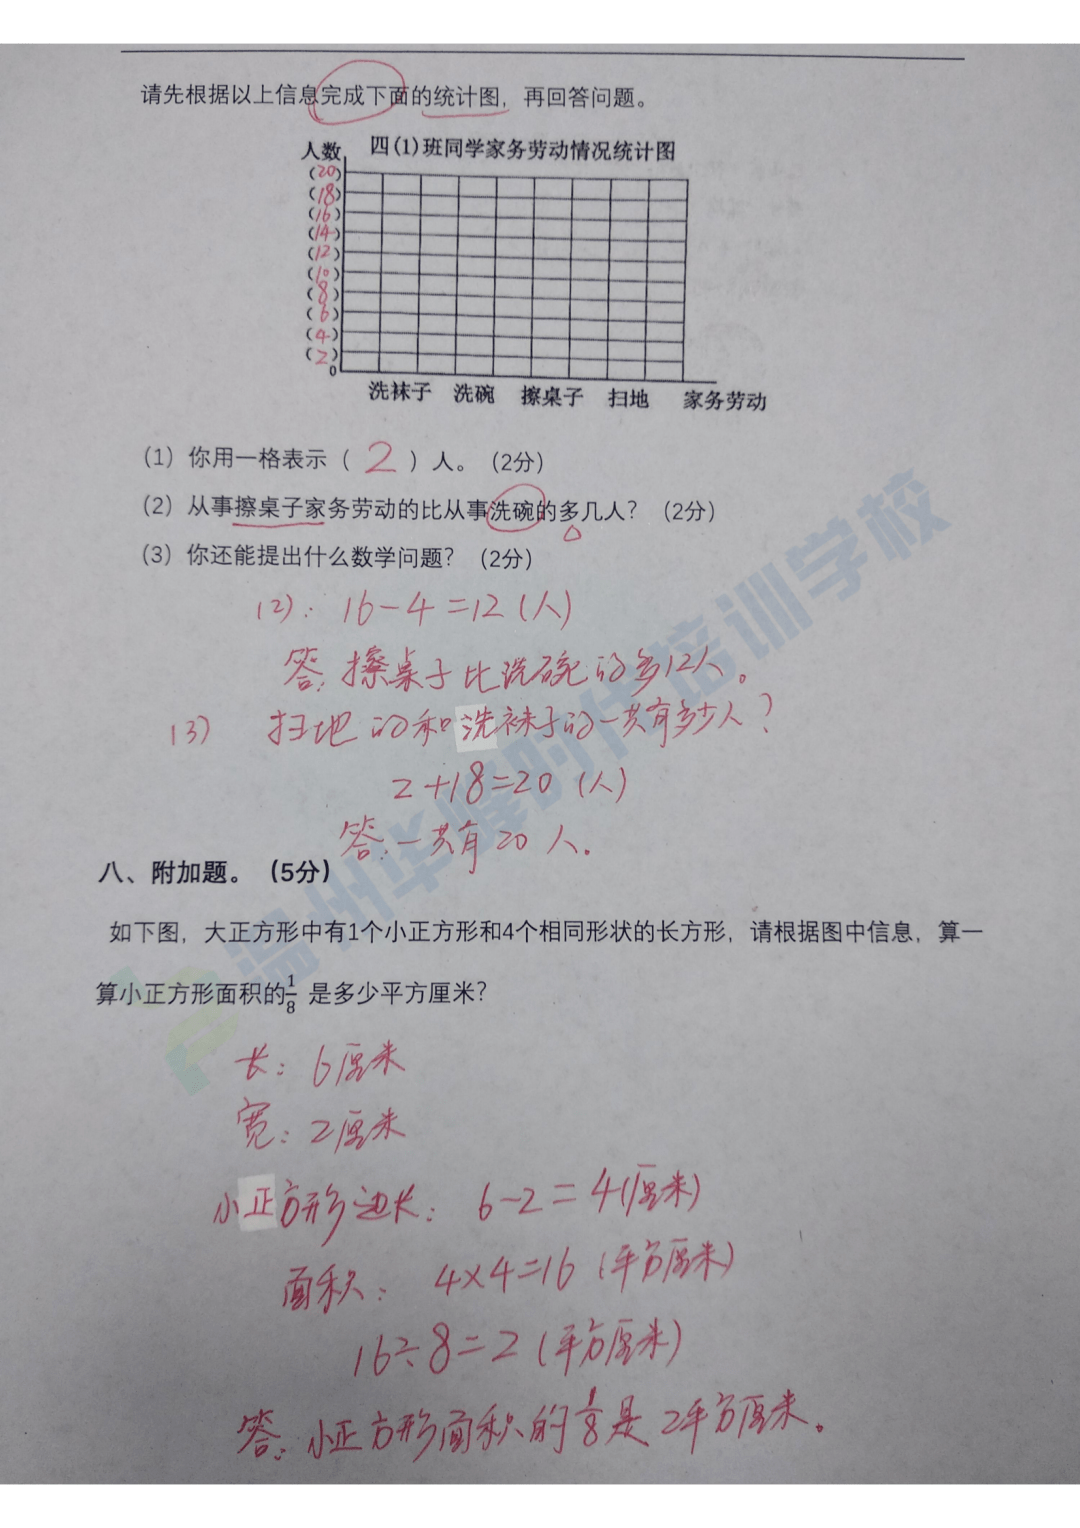 请先根据以上信息完成下面的统计图，再回答问题。
四(1)班同学家务劳动情况统计图
人数
(20)
(18)
(16)
(14)
(12)
(10)
(8)
(6)
(4)
(2)
0
洗袜子 洗碗 擦桌子 扫地 家务劳动
(1) 你用一格表示（ 2 ）人。（2分）
(2) 从事擦桌子家务劳动的比从事洗碗的多几人？（2分）
(3) 你还能提出什么数学问题？（2分）
(2): 16-4=12(人)
答: 擦桌子比洗碗的多12人。
(3) 扫地的和洗袜子的一共有多少人？
2+18=20 (人)
答: 一共有20人.
八、附加题。（5分）
如下图，大正方形中有1个小正方形和4个相同形状的长方形，请根据图中信息，算一
算小正方形面积的1/8 是多少平方厘米？
长: 6厘米
宽: 2厘米
小正方形边长: 6-2=4(厘米)
面积: 4×4=16 (平方厘米)
16÷8=2 (平方厘米)
答: 小正方形面积的1/8是2平方厘米。
温州华峰时代培训学校